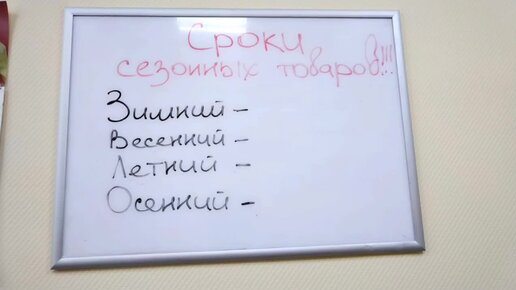 Сроки
сезонных товаров!!!
Зимний -
Весенний -
Летний -
Осенний -